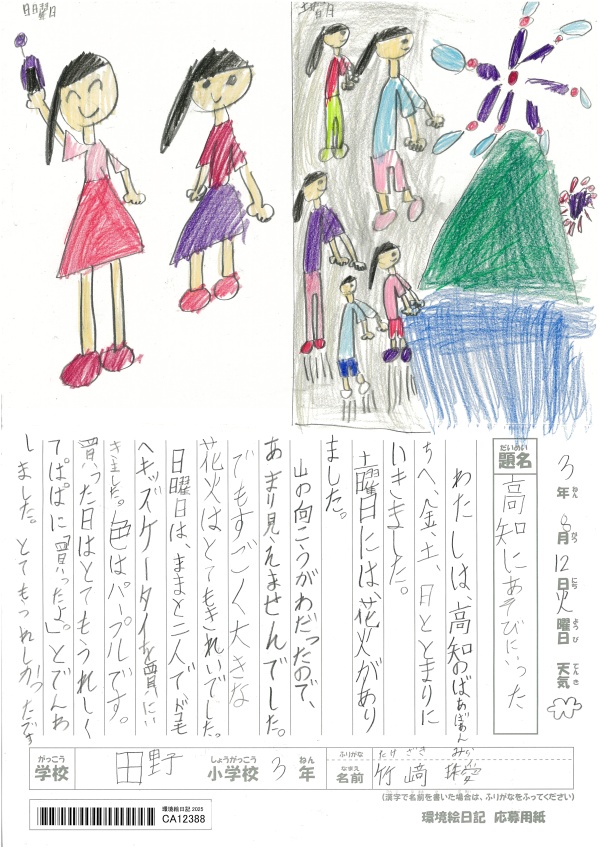 日曜日
土曜日
3年8月12日火曜日 天気
ねん がつ にち ようび てんき
だいめい
題名
高知にあそびにいった
わたしは、高知のばあばあん
ちへ、金、土、日ととまりに
いきました。
土曜日には、花火があり
ました。
山の向こうがわだったので、
あまり見えませんでした。
でもすごく大きな
花火はとてもきれいでした。
日曜日は、ままと二人で、ドコモ
へキッズケータイを買いにい
きました。色はパープルです。
買った日はとてもうれしく
てぱぱに「買ったよ。」とでんわ
しました。とてもうれしかったです
がっこう
学校
田野
しょうがっこう
小学校
3
ねん
年
ふりがな
たけ ざき みら
なまえ
名前
竹﨑 珠愛
(漢字で名前を書いた場合は、ふりがなをふってください)
環境絵日記 2025
CA12388
環境絵日記 応募用紙